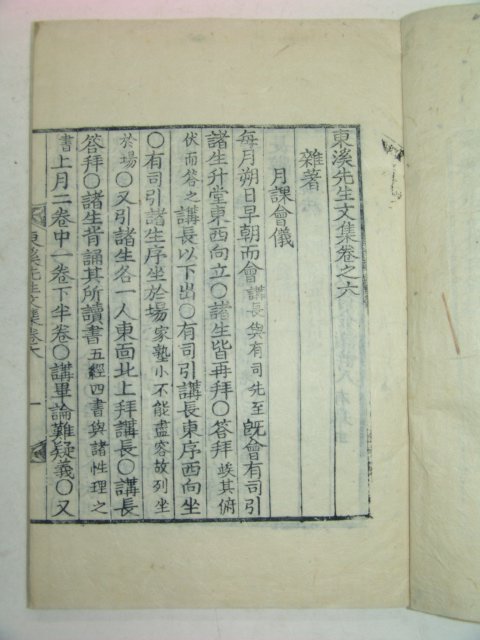 東溪先生文集卷之六
雜著
月課會儀
每月朔日早朝而會講長與有司先至既會有司引
諸生升堂東西向立○諸生皆再拜○答拜竢其俯
伏而答之講長以下出○有司引講長東序西向坐
○有司引諸生序坐於場家塾小不能盡容故列坐
於場○又引諸生各一人東面北上拜講長○講長
答拜○諸生背誦其所讀書五經四書與諸性理之
書上月二卷中一卷下半卷○講畢論難疑義○又
東溪先生文集卷六
一